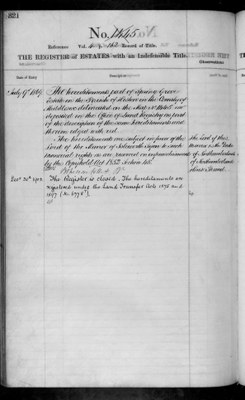 821
No. 1445
Reference Vol. Record of Title.
THE REGISTER of ESTATES with an Indefeasible Title.
Date of Entry
Description
Observations
July 17 1869
The hereditaments part of Spring Grove
Estate in the Parish of Heston in the County of
Middlesex delineated on the Map
deposited in the Office of Land Registry as part
of the description of the same hereditaments and
therein edged with red.
The hereditaments are subject in favor of the
Lord of the Manor of Isleworth Syon to such
manorial rights as are reserved on enfranchisement
by the Copyhold Act 1852 Section 48.
the Lord of this
Manor is the Duke
of Northumberland
of Northumberland
House Strand.
The Register is closed. The hereditaments are
registered under the Land Transfer Acts 1875 and
1897